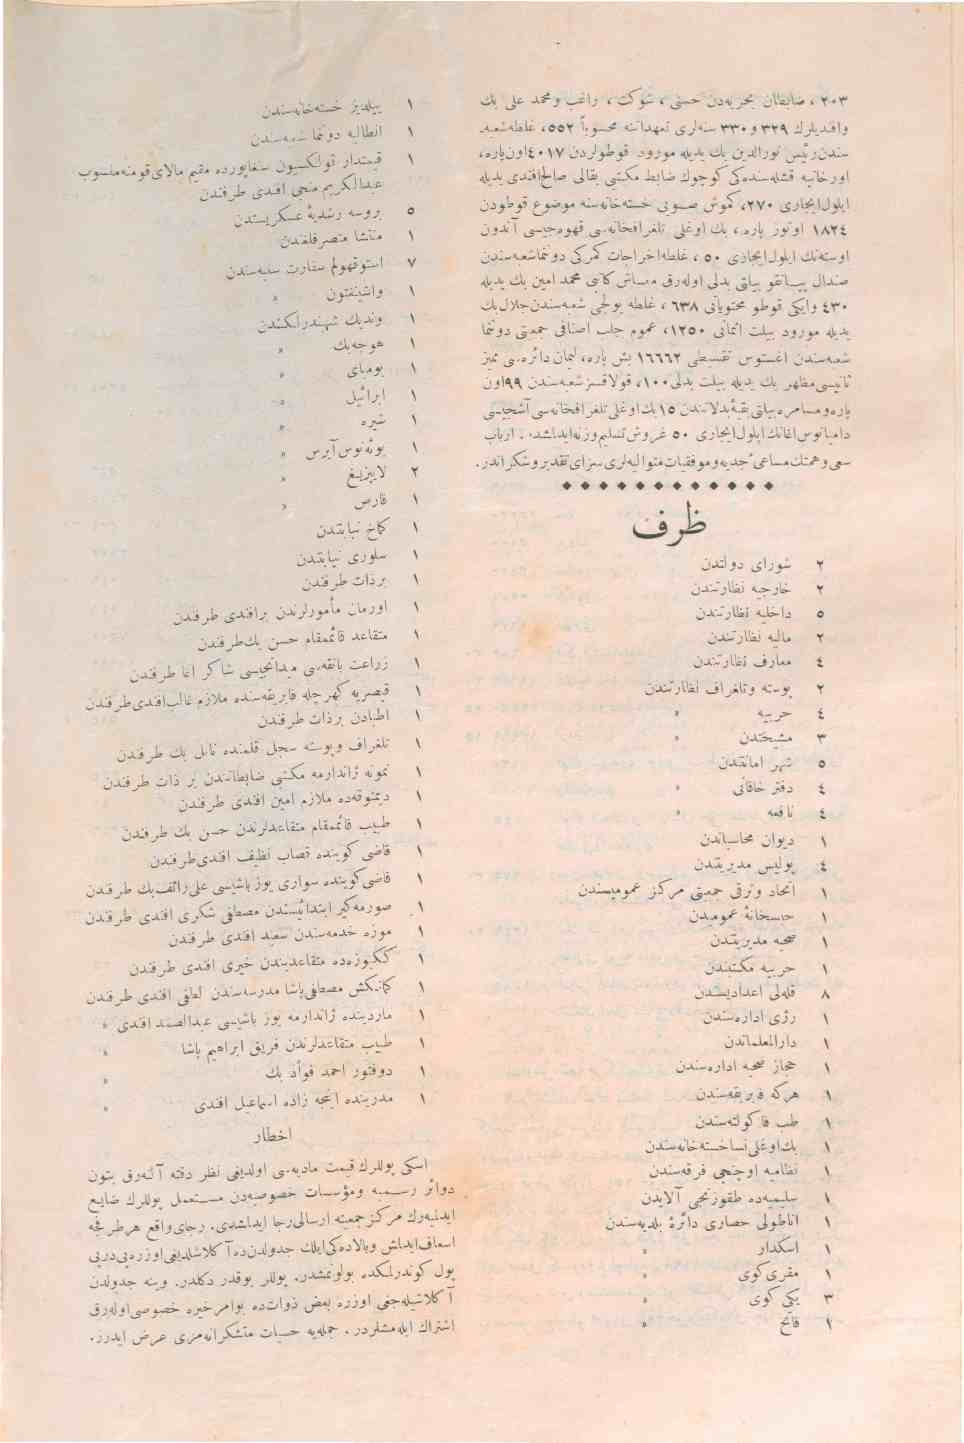 ٢٠٣ ، ضابطان بحریه‌دن حسنی ، شوکت ، راغب و محمد علی بك
وافندیلرك ٣٢٩ و ٣٣٠ سنه‌لری تعهداتنه محسوباً ٥٥٢، غلطه شعبه‌
سندن رئیس نورالدین بك یدیله مورود قوطولردن ٤٠١٧ اون پاره،
اورخانیه قشله‌سنده‌کی کوچوك ضابط مکتبی بقالی صالح افندی یدیله
ایلول ایجاری ٢٧٠، کموش صویی خسته‌خانه‌سنه موضوع قوطودن
١٨٢٤ اوتوز پاره، بك اوغلی تلغرافخانه‌سی قهوه‌جیسی آندون
اوسته‌نك ایلول ایجاری ٥٠ ، غلطه اخراجات کمرکی دونما شعبه‌سندن
صندال پیانقو بیلتی بدلی اوله‌رق معاش کاتبی محمد امین بك یدیله
٤٣٠ وایکی قوطو محتویاتی ٦٣٨ ، غلطه یولجی شعبه‌سندن جلال بك
یدیله مورود بیلت اثمانی ١٢٥٠، عموم جلب اصنافی جمعیتی دونما
شعبه‌سندن اغستوس تقسیطی ١٦٦٦٢ بش پاره، لیمان دائره‌سی ممیز
ثانیسی مظهر بك یدیله بیلت بدلی ١٠٠، قولاقسز شعبه‌سندن ٩٩ اون
پاره و مسامره بیلتی بقیهٔ بدلاتندن ١٥ بك اوغلی تلغرافخانه‌سی آشجیسی
دامیانوس اغانك ایلول ایجاری ٥٠ غروش تسلیم وزنه ایدلشدر. ارباب
سعی و همتك مساعیٔ جدیه و موفقیات متوالیه‌لری سزای تقدیر و شکراندر.
ظرف
٢ شورای دولتدن
٢ خارجیه نظارتندن
٥ داخلیه نظارتندن
٢ مالیه نظارتندن
٤ معارف نظارتندن
٢ پوسته وتلغراف نظارتندن
٤ حربیه »
٣ مشیختدن »
٥ شهر امانتندن
٤ دفتر خاقانی »
٤ نافعه »
١ دیوان محاسباتدن
٤ پولیس مدیریتندن
١ اتحاد وترقی جمعیتی مرکز عمومیسندن
١ حبسخانهٔ عمومیدن
١ صحیه مدیریتندن
١ حربیه مکتبندن
٨ قله‌لی اعدادیسندن
١ رژی اداره‌سندن
١ دارالمعلماتدن
١ حجاز صحیه اداره‌سندن
١ هرکه فابریقه‌سندن
١ طب فاکولته‌سندن
١ بك اوغلی نسا خسته‌خانه‌سندن
١ نظامیه اوچنجی فرقه‌سندن
١ سلیمیه‌ده طقوزنجی آلایدن
١ اناطولی حصاری دائرهٔ بلدیه‌سندن
١ اسکدار »
١ مقری کوی »
٣ یکی کوی »
١ فاتح »
١ ییلدیز خسته‌خانه‌سندن
١ انطالیه دونما شعبه‌سندن
١ قیمتدار قولکسیون سنغاپورده مقیم مالای قومنه منسوب
عبدالکریم منجی افندی طرفندن
٥ بروسه رشدیهٔ عسکریسندن
١ منتشا متصرفلغندن
٧ استوقهولم سفارت سنیه‌سندن
١ واشینغتون »
١ وندیك شهبندرلکندن
١ هوجه‌بك »
١ بومبای »
١ ابرائیل »
١ شیره »
١ بوئه‌نوس آیرس »
٢ لایپزیغ »
١ فارص »
١ کماخ نیابتندن
١ سلوری نیابتندن
١ برذات طرفندن
١ اورمان مأمورلرندن برافندی طرفندن
١ متقاعد قائممقام حسن بك طرفندن
١ زراعت بانقه‌سی میدانجیسی شاکر اغا طرفندن
١ قیصریه کهرچله فابریقه‌سنده ملازم غالب افندی طرفندن
١ اطبادن برذات طرفندن
١ تلغراف وپوسته سجل قلمنده نائل بك طرفندن
١ نمونه ژاندارمه مکتبی ضابطانندن بر ذات طرفندن
١ دیمتوقه‌ده ملازم امین افندی طرفندن
١ طبیب قائممقام متقاعدلرندن حسن بك طرفندن
١ قاضی کوینده قصاب نظیف افندی طرفندن
١ قاضی کوینده سواری یوز باشیسی علی رائف بك طرفندن
١ صورمه‌کیر ابتدائیسندن مصطفی شکری افندی طرفندن
١ موزه خدمه‌سندن سعید افندی طرفندن
١ ککبوزه‌ده متقاعدیندن خیری افندی طرفندن
١ کمانکش مصطفی پاشا مدرسه‌سندن لطفی افندی طرفندن
١ ماردینده ژاندارمه یوز باشیسی عبدالصمد افندی »
١ طبیب متقاعدلرندن فریق ابراهیم پاشا »
١ دوقتور احمد فوأد بك »
١ مدرینده اینجه زاده اسماعیل افندی »
اخطار
اسکی پوللرك قیمت مادیه‌سی اولدیغی نظر دقته آلنه‌رق بتون
دوائر رسمیه ومؤسسات خصوصیه‌دن مستعمل پوللرك ضایع
ایدلمیه‌رك مرکز جمعیته ارسالی رجا ایدلشدی. رجای واقع هر طرفجه
اسعاف ایدلمش وبالاده‌کی ایلك جدولدن‌ده آکلاشلدیغی اوزره پی‌درپی
پول کوندرلمکده بولونمشدر. پوللر یوقدر دکلدر. وینه جدولدن
آکلاشیله‌جغی اوزره بعض ذوات‌ده بوامر خیره خصوصی اوله‌رق
اشتراك ایله‌مشلردر. جمله‌یه حسیات متشکرانه‌مزی عرض ایدرز.